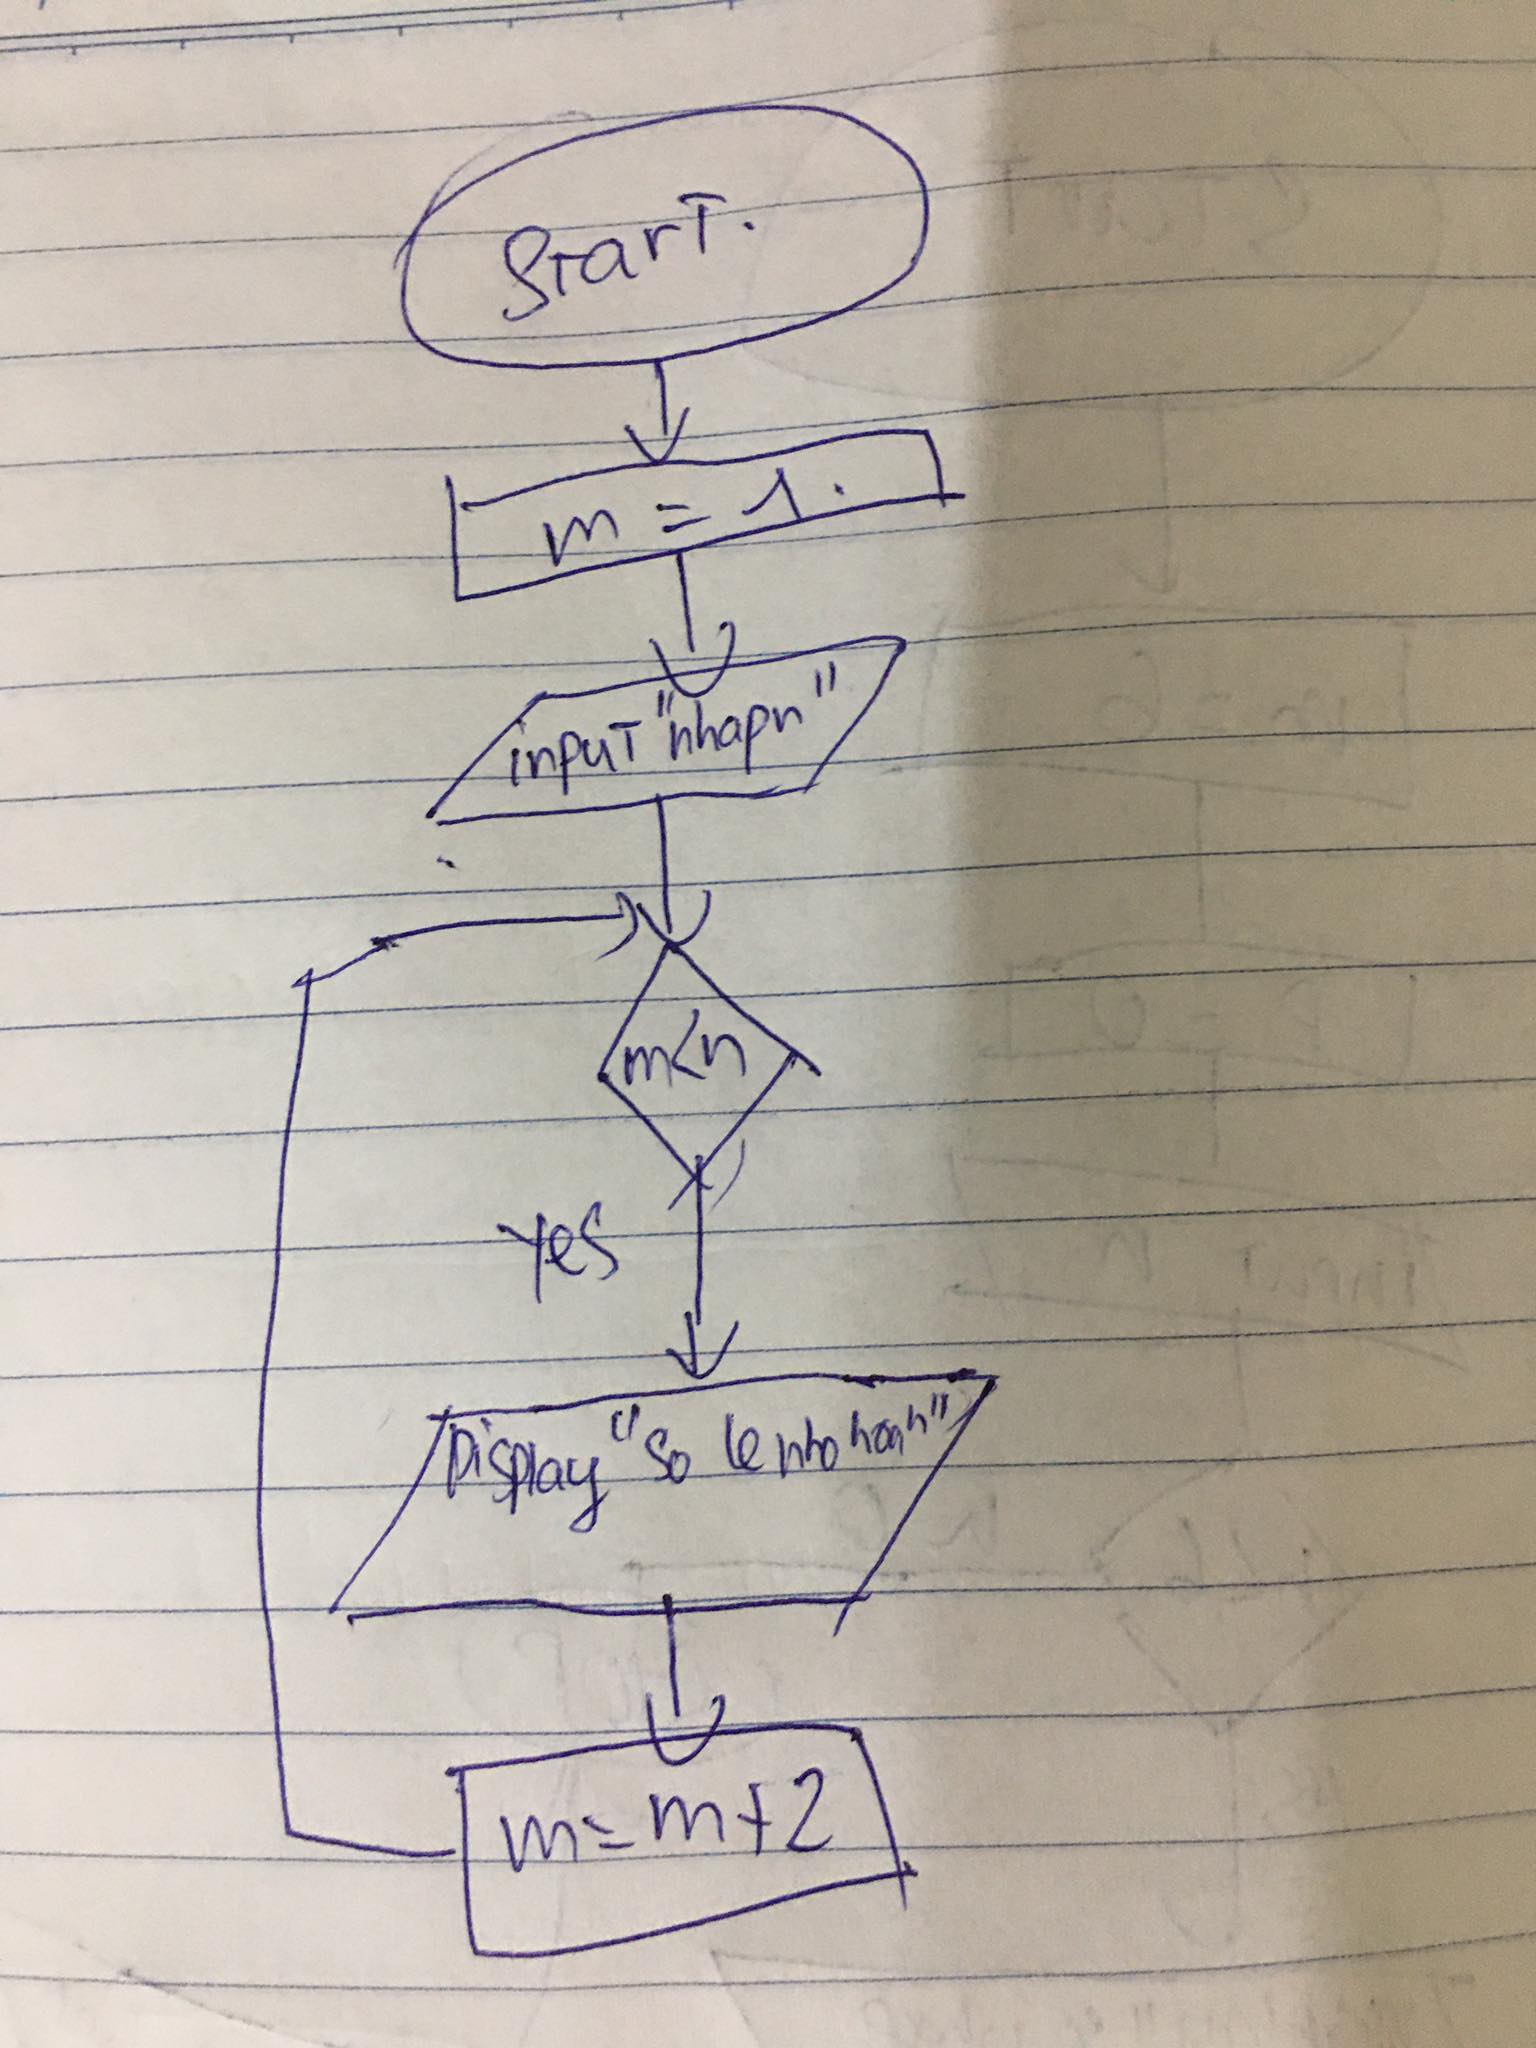 Start.
m = 1.
input "nhapn"
m<n
yes
Display "So le nho hon"
m=m+2